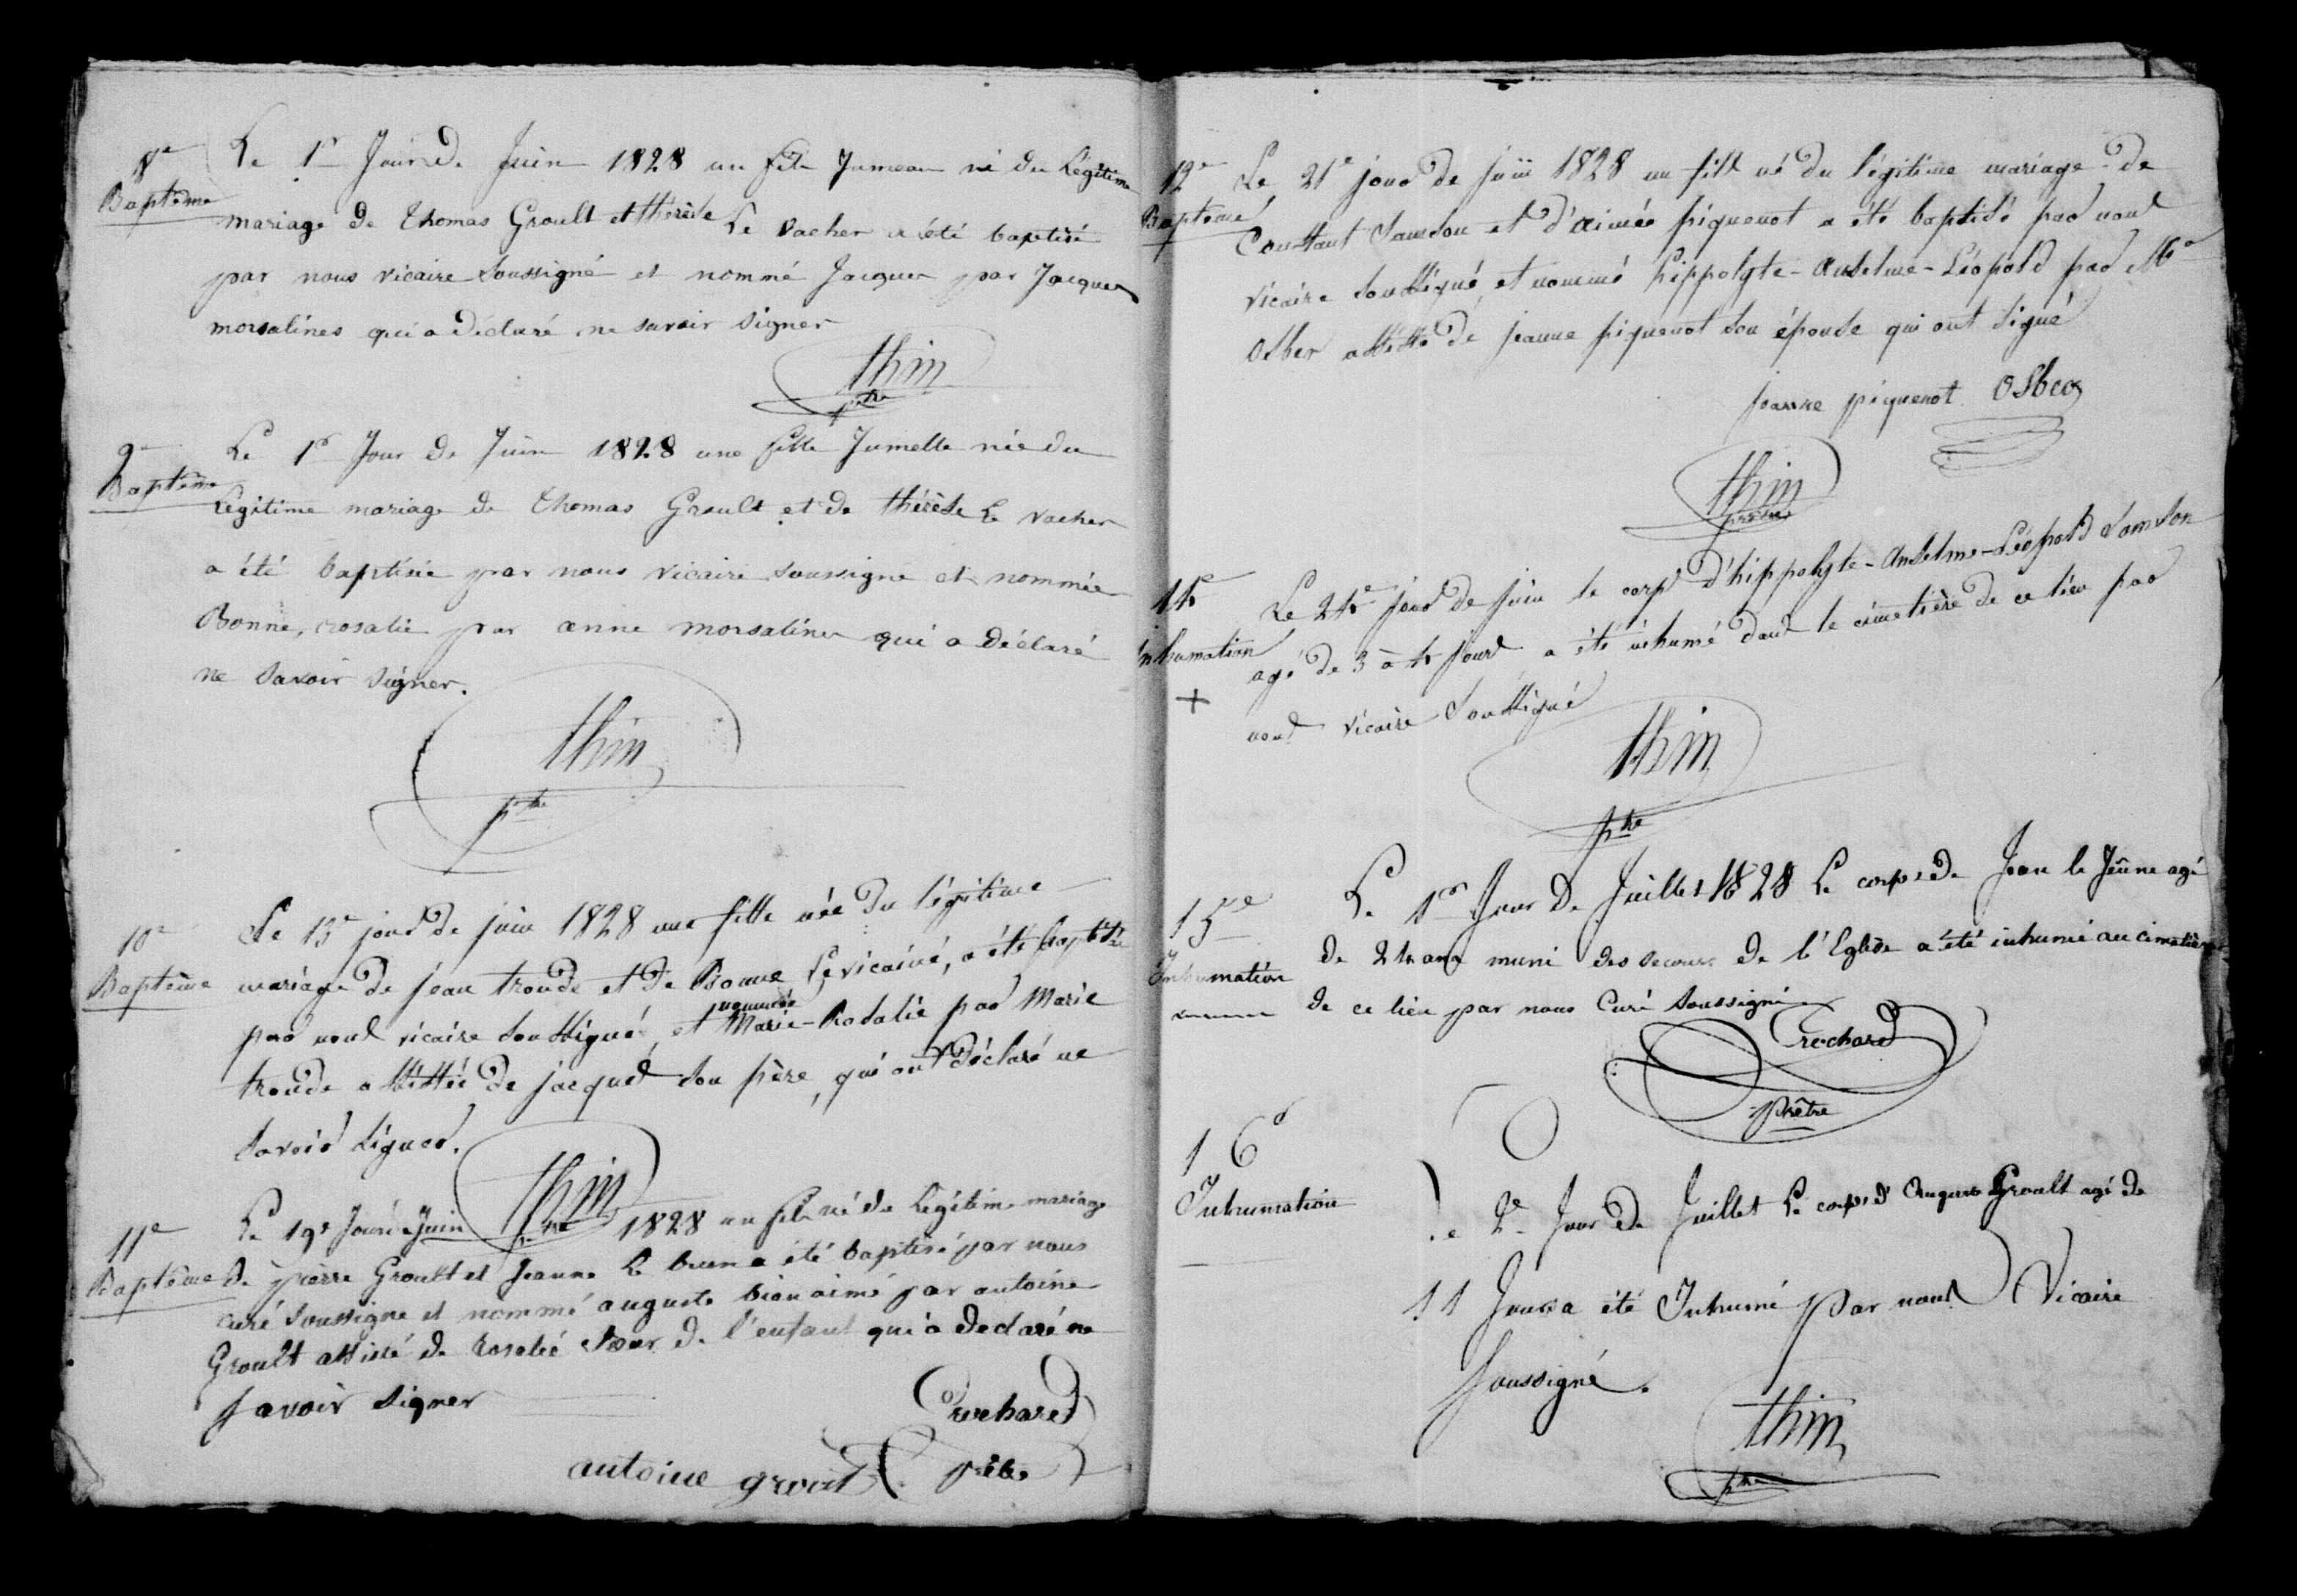 8e Le 1er Jour de Juin 1828 un fils Jumeau né du Légitime
Baptême mariage de Thomas Groult et thérèse Le vacher a été baptisé
par nous vicaire soussigné et nommé Jacques par Jacques
morsalines qui a déclaré ne savoir signer
thin
ptre
9e Le 1er Jour de Juin 1828 une fille Jumelle née du
Baptême Légitime mariage de Thomas Groult et de thérèse Le vacher
a été baptisée par nous vicaire soussigné et nommée
Bonne, rosalie par anne morsalines qui a déclaré
ne savoir signer.
thin
ptre
10e Le 13e jour de juin 1828 une fille née du légitime
Baptême mariage de jean troude et de Bonne Levicaire, a été baptisée
par nous vicaire soussigné, et nommée Marie-Rosalie par Marie
troude assistée de jacques son père, qui ont déclaré ne
savoir signer.
thin
ptre
11e Le 19e Jour de Juin 1828 un fils né du Légitime mariage
Baptême de pierre Groult et Jeanne Le brun a été baptisé par nous
curé soussigné et nommé auguste bien aimé par antoine
Groult assisté de rosalie sœur de l'enfant qui a declaré ne
savoir signer
Crochard
antoine groult prêtre
12e Le 21e jour de juin 1828 un fils né du légitime mariage de
Baptême Constant Samson et d'aimée piquenot a été baptisé par nous
vicaire soussigné, et nommé hippolyte-Anselme-Léopold par Mr
osber assisté de jeanne piquenot son épouse qui ont signé
jeanne piquenot Osber
thin
prêtre
14e Le 24e jour de juin le corps d'hippolyte-Anselme-Léopold Samson
inhumation agé de 3 à 4 jours a été inhumé dans le cimetière de ce lieu par
+ nous vicaire soussigné
thin
ptre
15e Le 1er Jour de Juillet 1828 Le corps de Jean le Jeûne agé
Inhumation de 24 ans muni des secours de l'Eglise a été inhumé au cimetière
de ce lieu par nous Curé soussigné
Crochard
prêtre
16e
Inhumation Le 2e Jour de Juillet Le corps d'Auguste Groult agé de
11 Jours a été Inhumé par nous Vicaire
soussigné.
thin
ptre